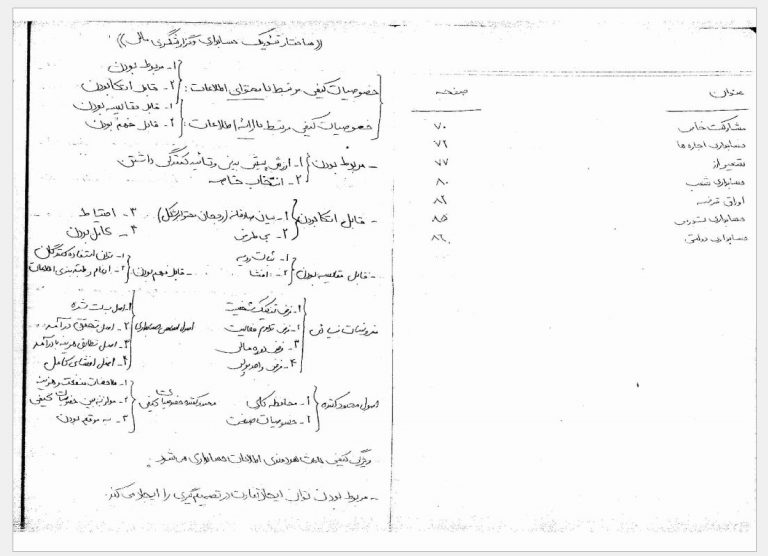 عنوان صفحه
مشارکت خاص ۷۰
حسابداری اجاره ها ۷۲
تسعیر ارز ۷۷
حسابداری شعب ۸۰
اوراق قرضه ۸۲
حسابداری تورمی ۸۵
حسابداری دولتی ۸۶
((ساختار تئوریک حسابداری و گزارشگری مالی))
خصوصیات کیفی مرتبط با محتوای اطلاعات: ۱- مربوط بودن
۲- قابل اتکا بودن
خصوصیات کیفی مرتبط با ارائه اطلاعات: ۱- قابل مقایسه بودن
۲- قابل فهم بودن
- مربوط بودن ۱- ارزش پیش بینی و تائید کنندگی داشتن
۲- انتخاب خاصه
- قابل اتکا بودن ۱- بیان صادقانه (رجحان محتوا بر شکل) ۳- احتیاط
۲- بی طرفی ۴- کامل بودن
- قابل مقایسه بودن ۱- ثبات رویه ۲- افشا - قابل فهم بودن ۱- توان استفاده کنندگان
۲- ادغام و طبقه بندی اطلاعات
مفروضات بنیادی ۱- فرض تفکیک شخصیت
۲- فرض تداوم فعالیت
۳- فرض دوره مالی
۴- فرض واحد پولی
اصول حسابداری ۱- اصل بهای تمام شده
۲- اصل تحقق درآمد
۳- اصل تطابق هزینه با درآمد
۴- اصل افشای کامل
اصول محدود کننده ۱- محافظه کاری
۲- خصوصیات صنعت
محدود کننده خصوصیات کیفی ۱- ملاحظات منفعت و هزینه
۲- موازنه بین خصوصیات کیفی
۳- به موقع بودن
ویژگی کیفی باعث سودمندی اطلاعات حسابداری می شود.
- مربوط بودن توان ایجاد تفاوت در تصمیم گیری را ایجاد می کند.